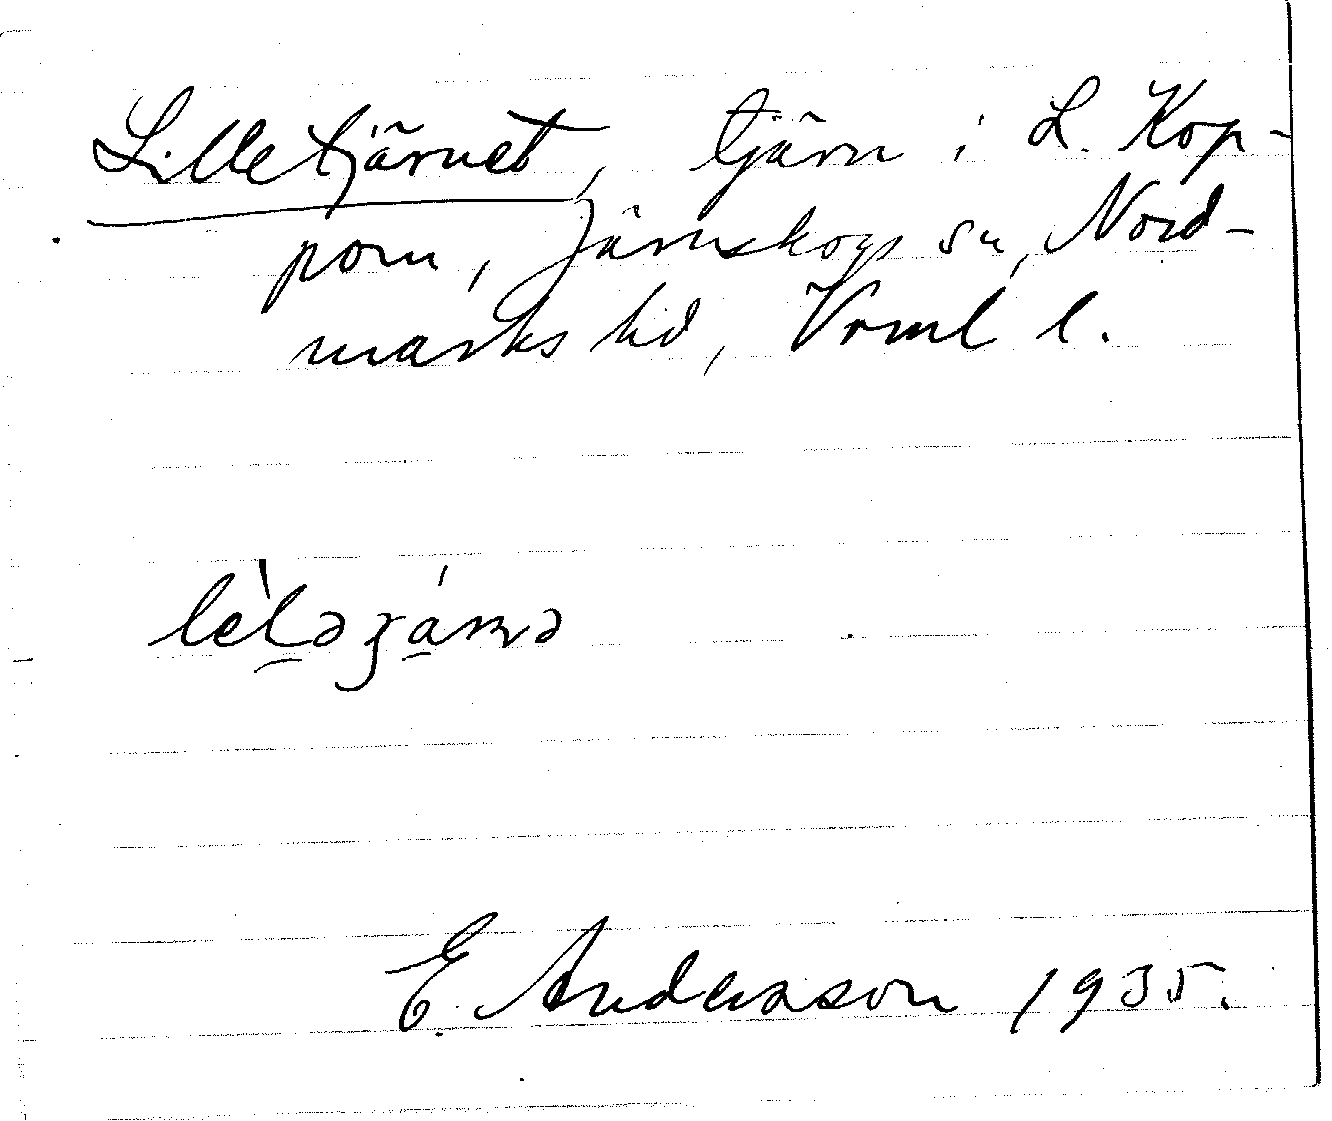 Lilletjärnet, tjärn i L. Kop-
pom, Järnskogs sn, Nord-
marks hd, Vrml l.
lèl̠əʒá̠rnə
E. Andersson 1935.